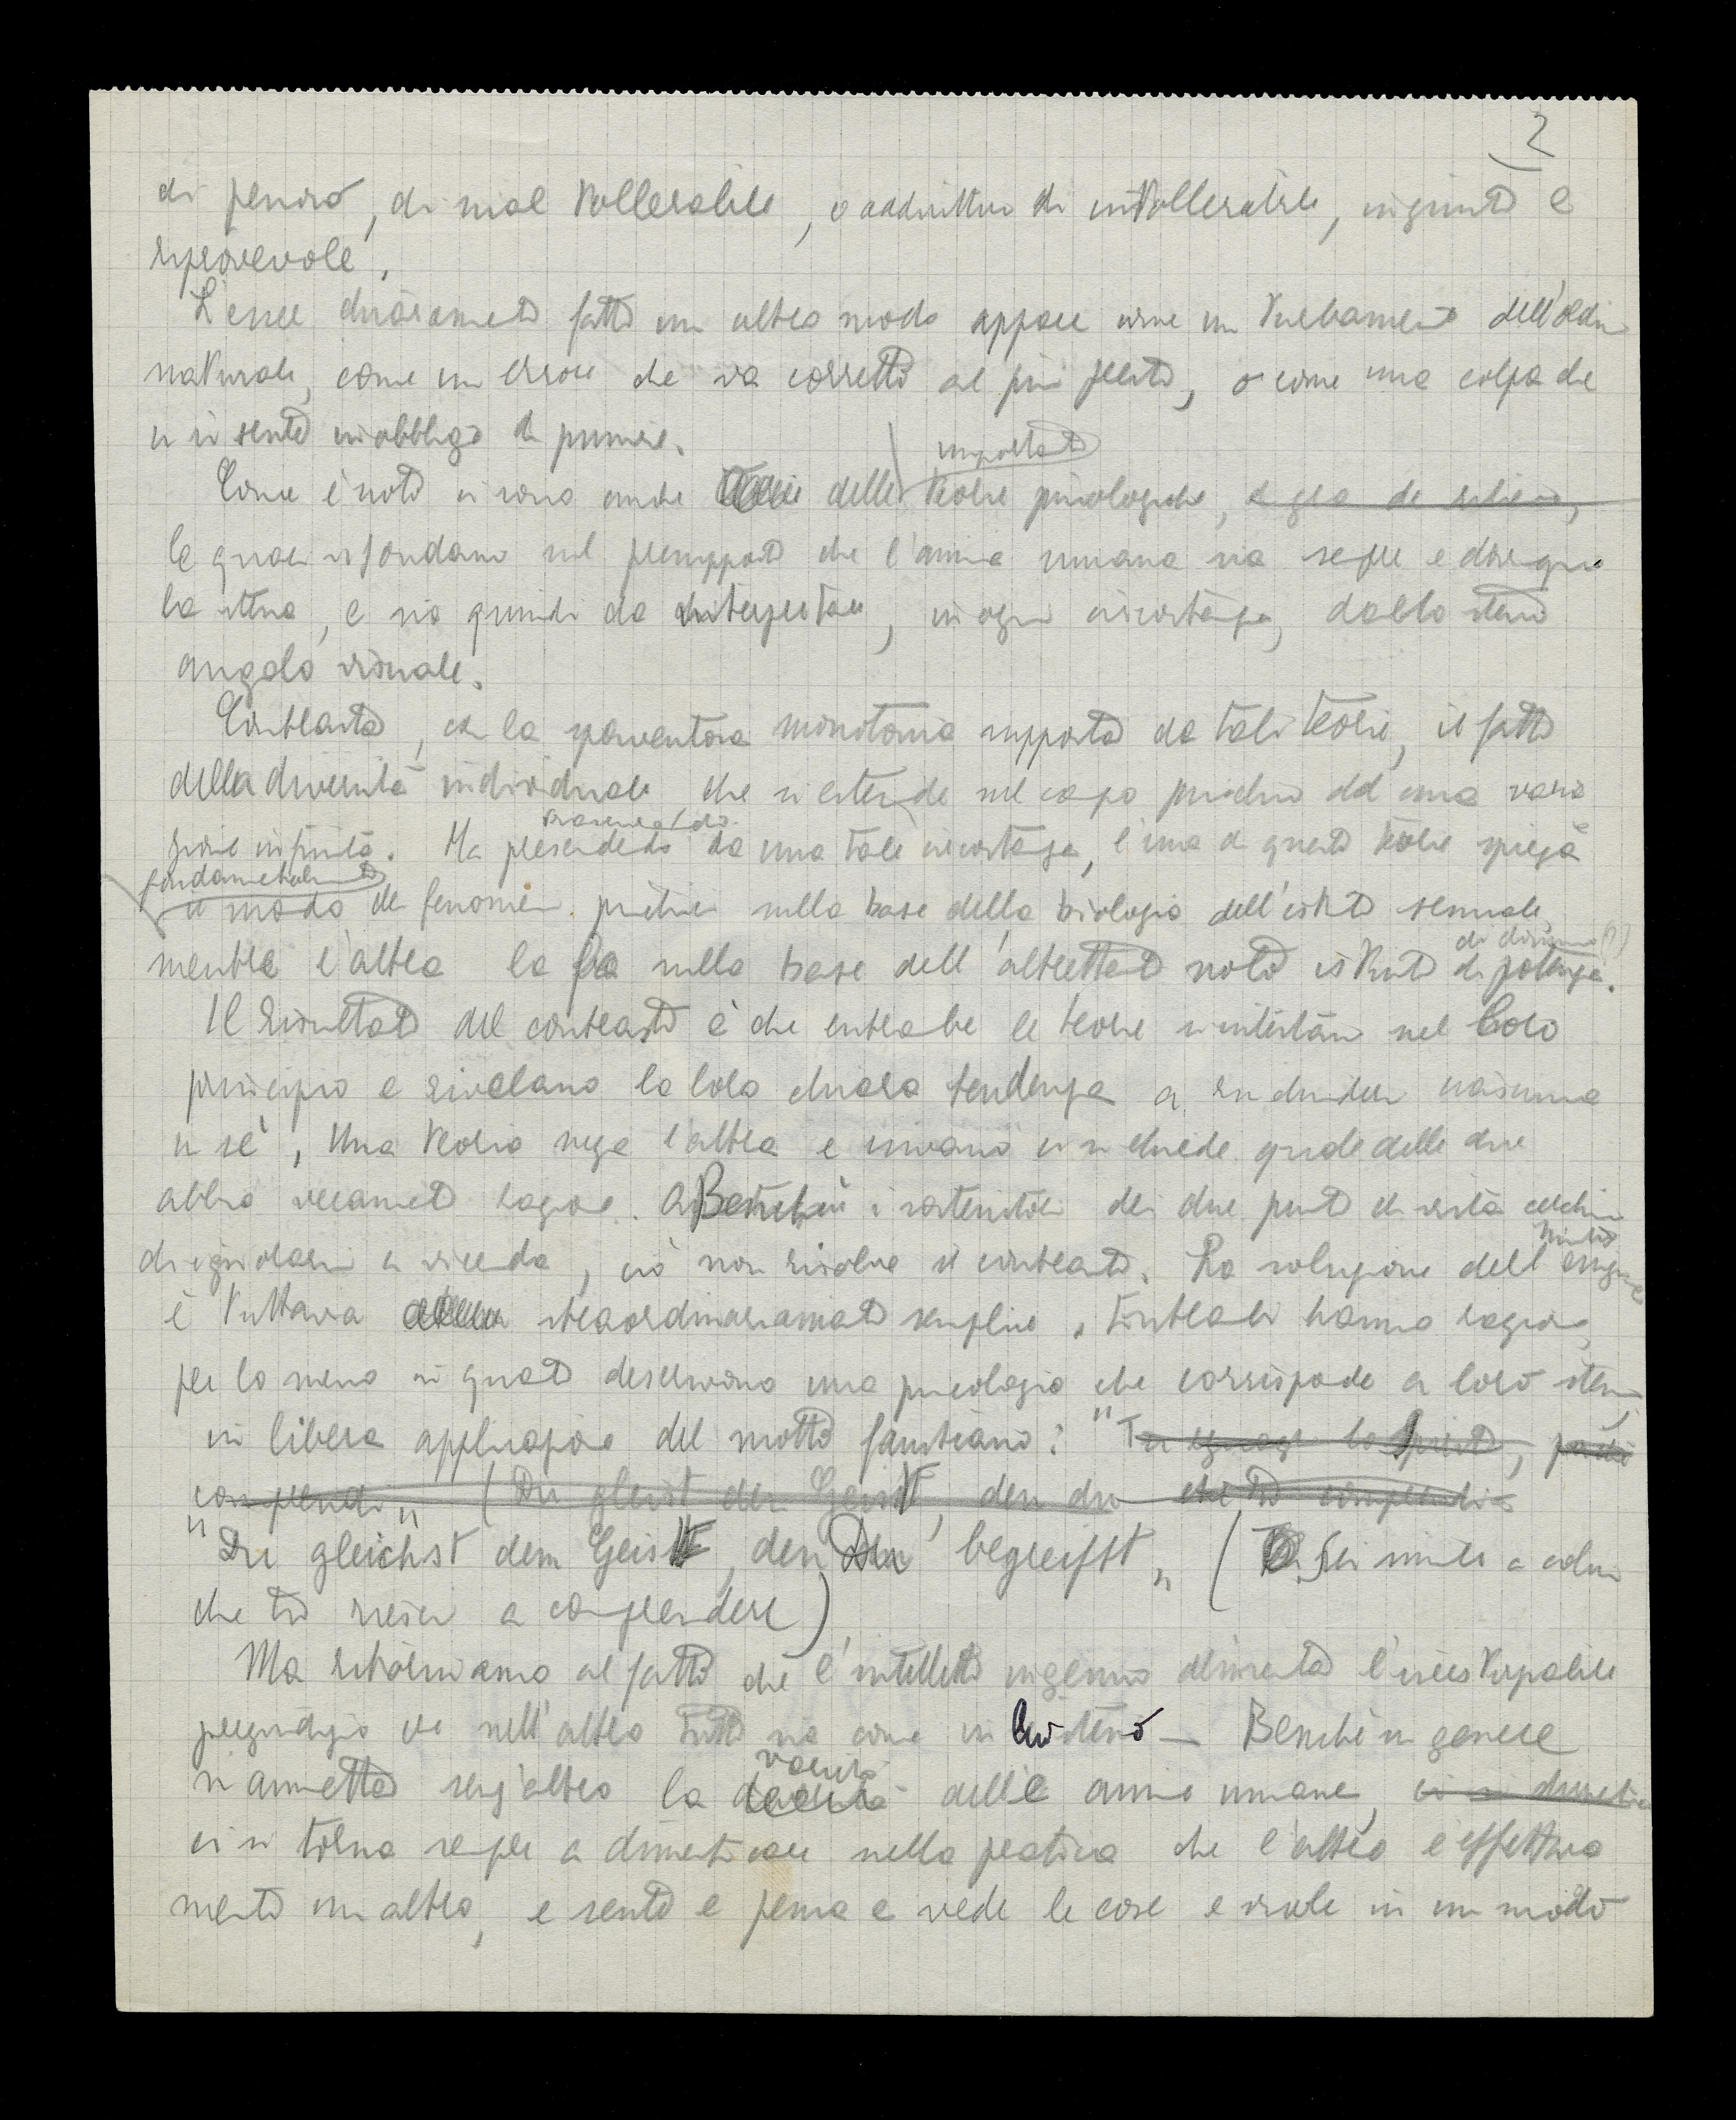 2
di penoso, di mal tollerabile, o addirittura di intollerabile, ingiusto e
riprovevole.
L'esser chiaramente fatto in altro modo appare come un turbamento dell'ordine
naturale, come un errore che va corretto al più presto, o come una colpa che
ci si sente in obbligo di punire.
importanti
Come è noto ci sono anche delle teorie psicologiche,
le quali si fondano sul presupposto che l'anima umana sia sempre e dovunque
la stessa, e sia quindi da interpretare, in ogni circostanza, dallo stesso
angolo visuale.
Contrasta, con la spaventosa monotonia supposta da tali teorie, il fatto
della diversità individuale, che si estende nel campo psichico ad una varia
zione infinita. Ma prescindendo da una tale circostanza, l'una di queste teorie spiega
fondamentalmente
il mondo dei fenomeni psichici sulla base della biologia dell'istinto sessuale,
mentre l'altra lo fa sulla base dell'altrettanto noto istinto di potenza.
Il risultato del contrasto è che entrambe le teorie si intestano nel loro
principio e rivelano la loro chiara tendenza a rinchiudersi ciascuna
in sé. Una teoria nega l'altra e invano ci si chiede quale delle due
abbia veramente ragione. Benché i sostenitori dei due punti di vista cerchino
di ignorarsi a vicenda, ciò non risolve il contrasto. La soluzione dell'enigma
è tuttavia straordinariamente semplice. Entrambi hanno ragione,
per lo meno in quanto descrivono una psicologia che corrisponde a loro stessi,
in libera applicazione del motto faustiano: "Tu eguagli lo spirito,
comprendi" (Du gleichst dem Geist, den du
"Du gleichst dem Geist, den Du begreifst" (Sei simile a colui
che tu riesci a comprendere)
Ma ritorniamo al fatto che l'intelletto ingenuo alimenta l'inestirpabile
pregiudizio che nell'altro tutto sia come in lui stesso – Benché in genere
varietà
si ammetta senz'altro la delle anime umane,
ci si torna sempre a dimenticare nella pratica che l'altro è effettiva
mente un altro, e sente e pensa e vede le cose e vuole in un modo